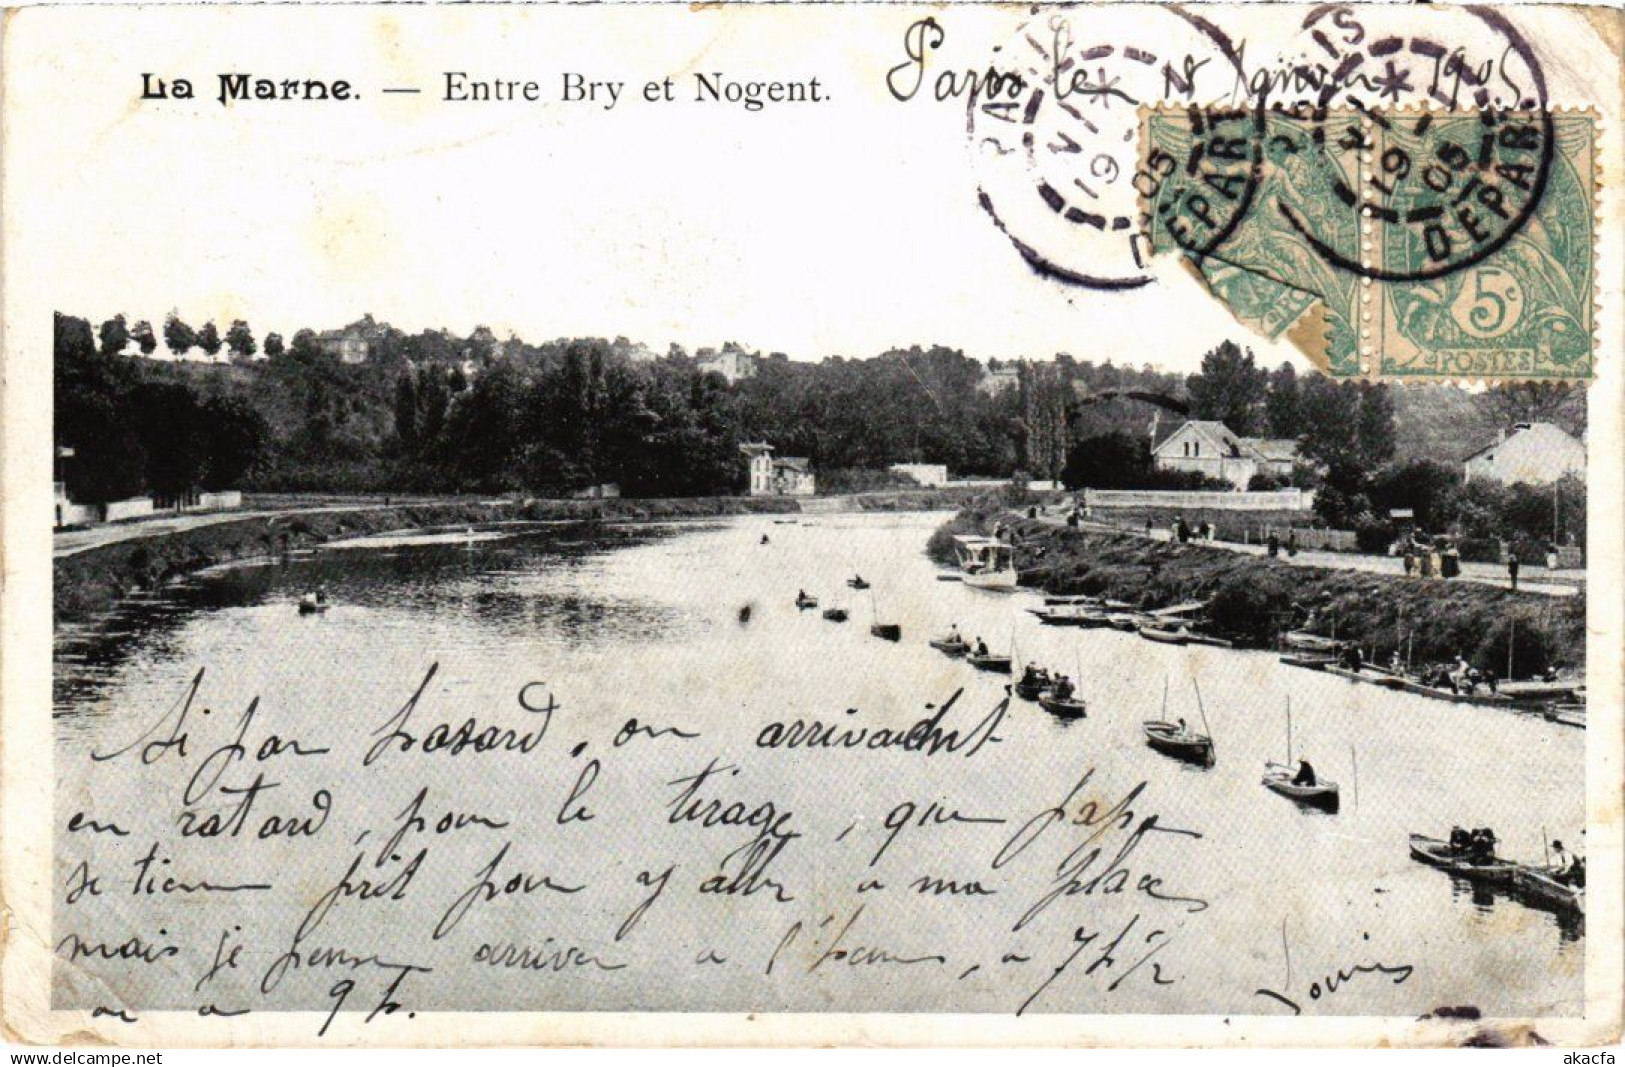 La Marne. — Entre Bry et Nogent.
Paris le 18 Janvier 1905
PARIS VI
19 05
DEPART
PARIS VI
19 05
DEPART
5c
POSTES
PO
Si par hasard, on arrivaint
en ratard, pour le tirage, que papa
se tienne prêt pour y aller a ma place
mais je pense arriver a l'heure, a 7h 1/2
ou a 9h.
Louis
akacfa